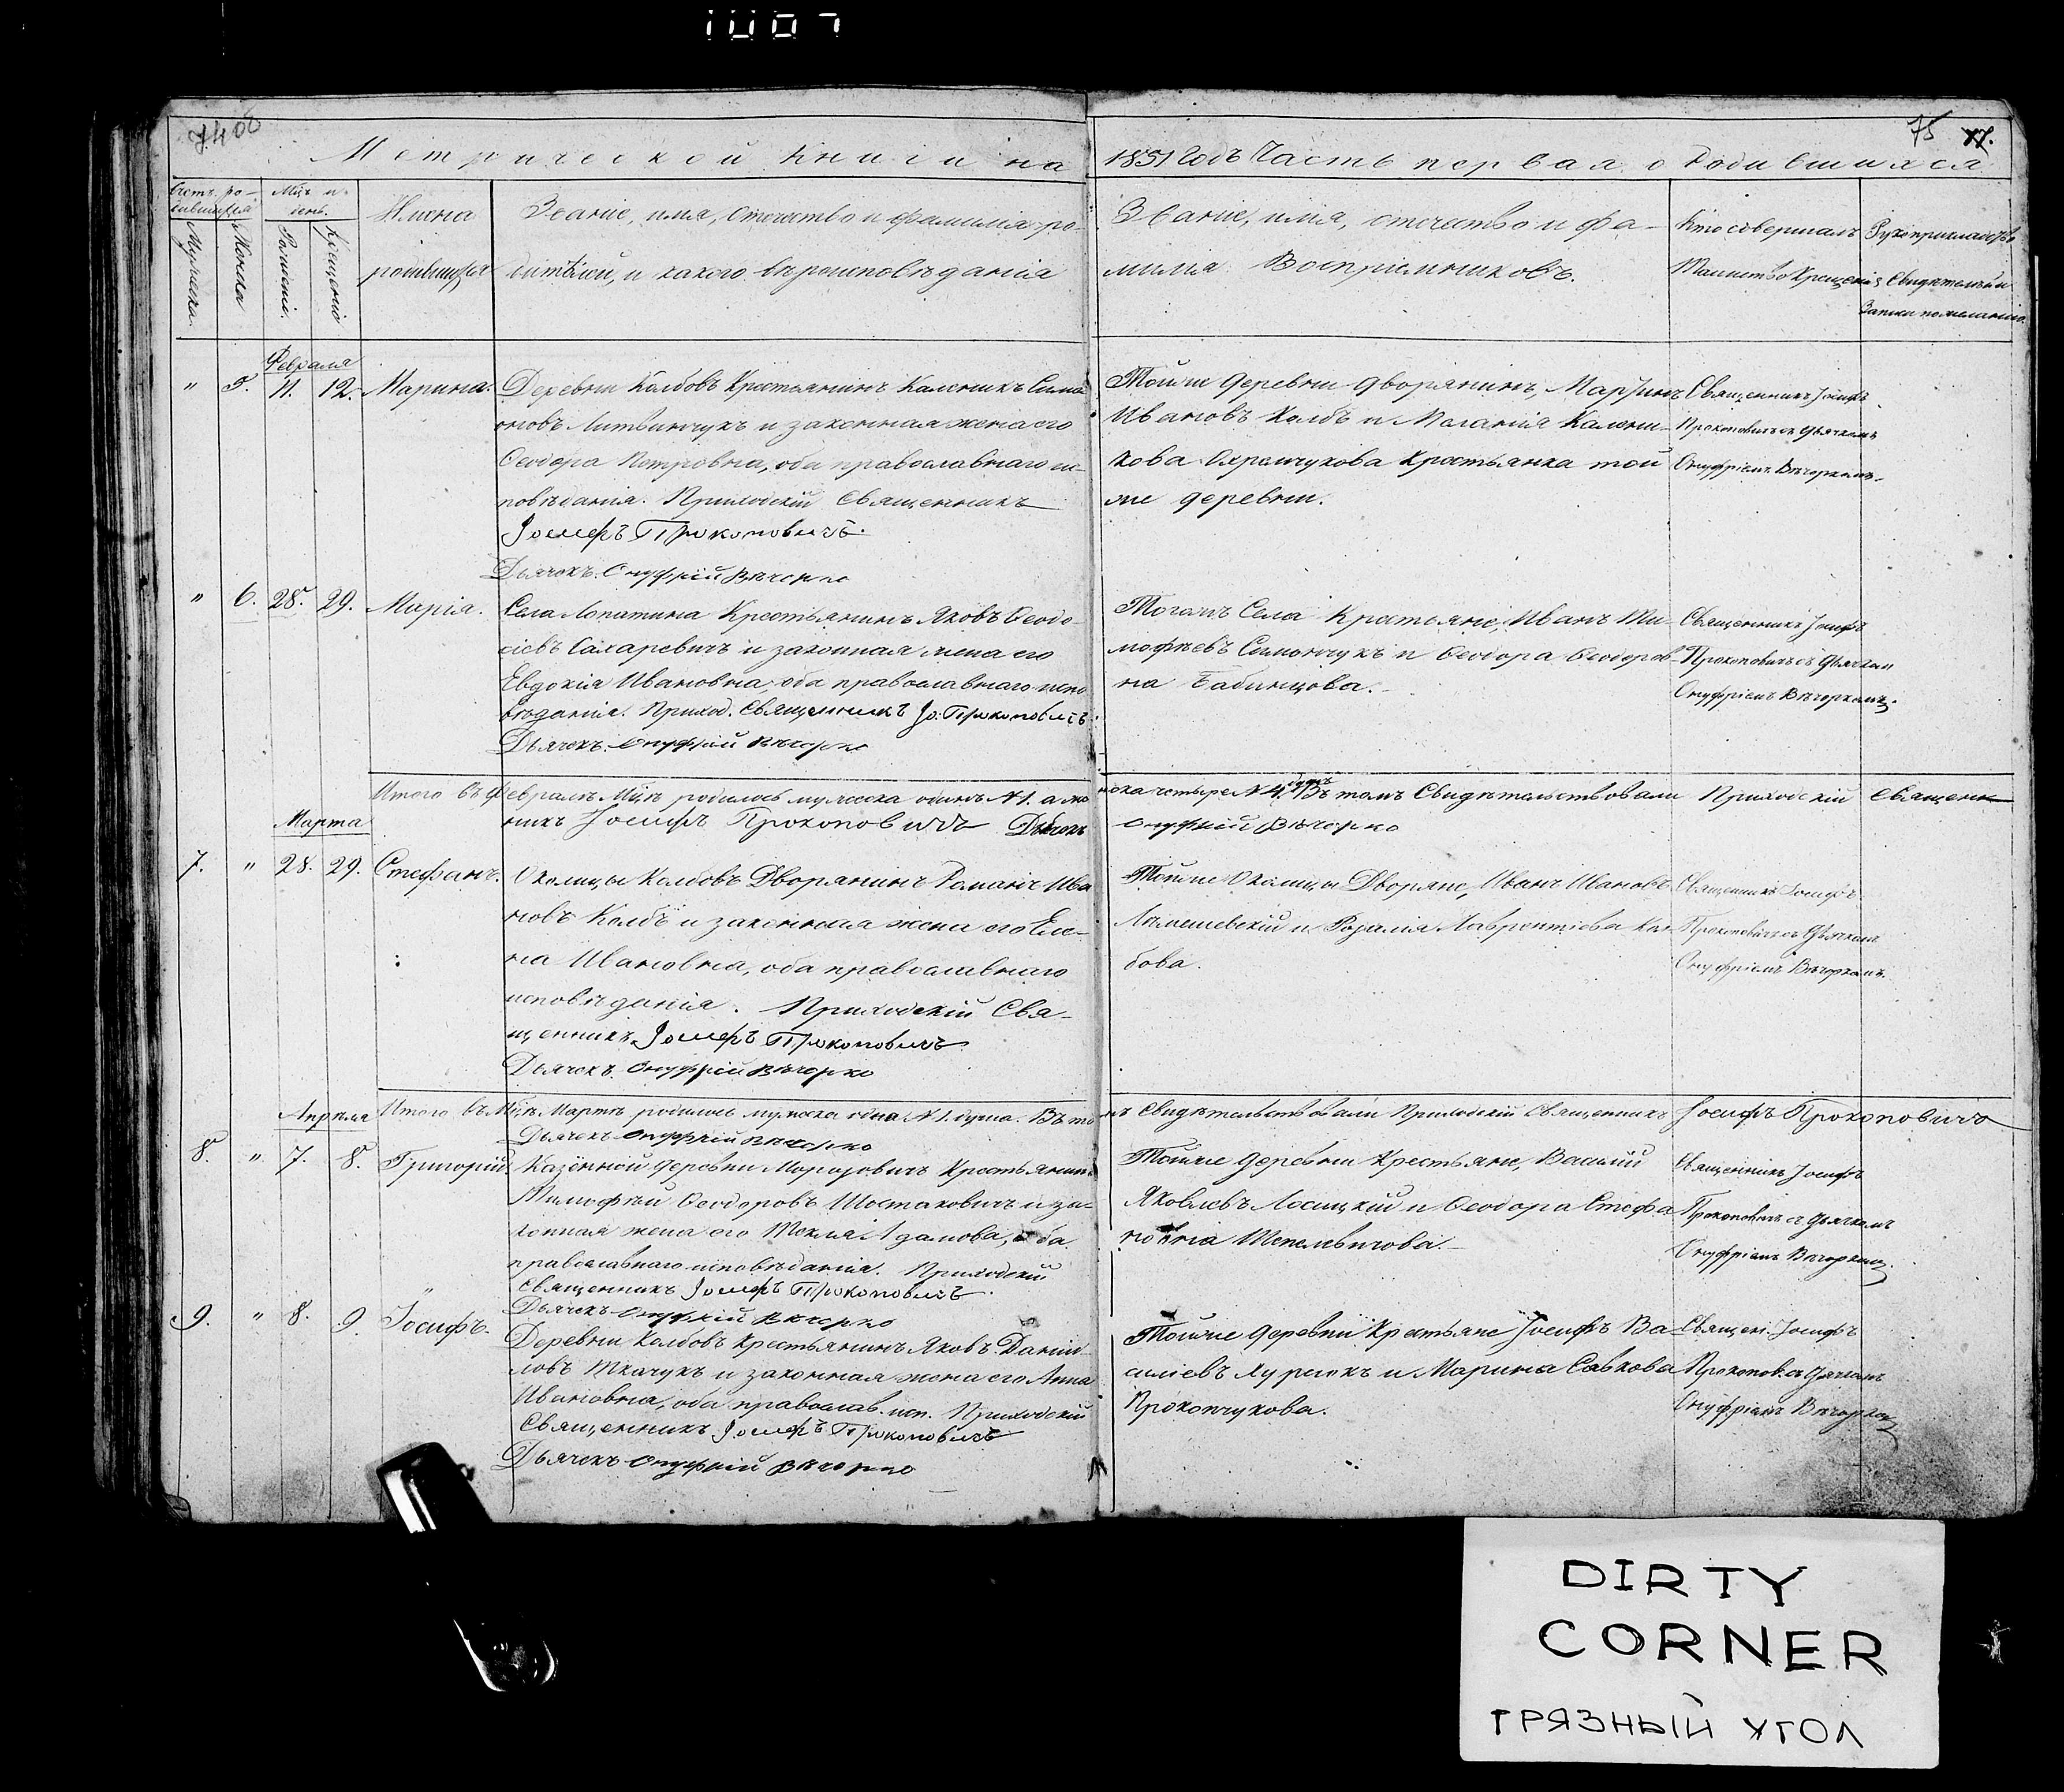 1007
74 об
75 77.
Метрической книги на 1851 Годъ Часть первая о Родившихся
Счетъ ро-
дившихся
Мужеска.
Женска
Мѣц. и
день.
Рожденія.
Крещенія
Имена
родившихся
Званіе, имя, отчество и фамилія ро-
дителей, и какого вѣроисповѣданія
Званіе, имя, отчество и фа-
милія Воспріемниковъ.
Кто совершалъ
Таинство Крещенія
Рукоприкладство
Свидѣтелей
Записи по желанію.
Февраля
" 5. 11. 12. Марина.
Деревни Колбовъ Крестьянинъ Каленикъ Сима
оновъ Литвинчукъ и законная жена его
Ѳеодора Петровна, оба православнаго ис-
повѣданія. Приходскій Священникъ
Іосифъ Прокоповичъ.
Дьячекъ Онуфрій Вѣчорко
Тойже деревни дворянинъ, Мартинъ
Ивановъ Колбъ и Маланія Калени-
кова Охремчукова Крестьянка той
же деревни.
Священникъ Іосифъ
Прокоповичъ съ Дьячкомъ
Онуфріемъ Вѣчоркомъ.
" 6. 28. 29. Марія.
Села Лопатина Крестьянинъ Яковъ Ѳеодо-
сіевъ Сахаревичъ и законная жена его
Евдокія Ивановна, оба православнаго испо
вѣданія. Приход. Священникъ Іо. Прокоповичъ.
Дьячекъ Онуфрій Вѣчорко
Тогожъ Села Крестьяне, Иванъ Ти-
мофѣевъ Симончукъ и Ѳеодора Ѳеодоров-
на Бабинцова.
Священникъ Іосифъ
Прокоповичъ съ Дьячком
Онуфріемъ Вѣчоркомъ.
Итого въ Февралѣ Мѣц. родилось мужеска одинъ № 1. а же
нска четыре № 4. душъ Въ томъ Свидѣтельствовали Приходскій Священ
никъ Іосифъ Прокоповичъ Дьячекъ
Онуфрій Вѣчорко
Марта
7. " 28. 29. Стефанъ.
Околицы Колбовъ Дворянинъ Романъ Ива
новъ Колбъ и законная жена его Еле-
на Ивановна, оба православнаго
исповѣданія. Приходскій Свя-
щенникъ Іосифъ Прокоповичъ
Дьячекъ Онуфрій Вѣчорко
Тойже Околицы Дворяне, Иванъ Ивановъ
Лѣмешевскій и Розалія Лаврентіева Кол
бова.
Священникъ Іосифъ
Прокоповичъ съ Дьячком
Онуфріемъ Вѣчоркомъ.
Итого въ Мѣц. Мартѣ родилось мужеска одна № 1. душа. Въ то
мъ Свидѣтельствовали Приходскій Священникъ Іосифъ Прокоповичъ
Дьячекъ Онуфрій Вѣчорко
Апрѣля
8. " 7. 8. Григорій
Казённой деревни Морозовичъ Крестьянинъ
Тимофѣй Ѳеодоровъ Шостаковичъ и за-
конная жена его Текля Адамова, оба
православнаго исповѣданія. Приходскій
Священникъ Іосифъ Прокоповичъ.
Дьячекъ Онуфрій Вѣчорко
Тойже деревни Крестьяне, Василій
Яковлевъ Лосицкій и Ѳеодора Стефа
новна Шепелевичова.
Священникъ Іосифъ
Прокоповичъ съ Дьячкомъ
Онуфріемъ Вѣчоркомъ.
9. " 8. 9. Іосифъ.
Деревни Колбовъ Крестьянинъ Яковъ Даніи-
ловъ Ткачукъ и законная жена его Анна
Ивановна, оба православ. исп. Приходскій
Священникъ Іосифъ Прокоповичъ
Дьячекъ Онуфрій Вѣчорко
Тойже деревни Крестьяне Іосифъ Ва-
силіевъ Курсюкъ и Марина Савкова
Прокопчукова.
Священ. Іосифъ
Прокопов. съ Дьячкомъ
Онуфріемъ Вѣчорком
DIRTY
CORNER
ГРЯЗНЫЙ УГОЛ